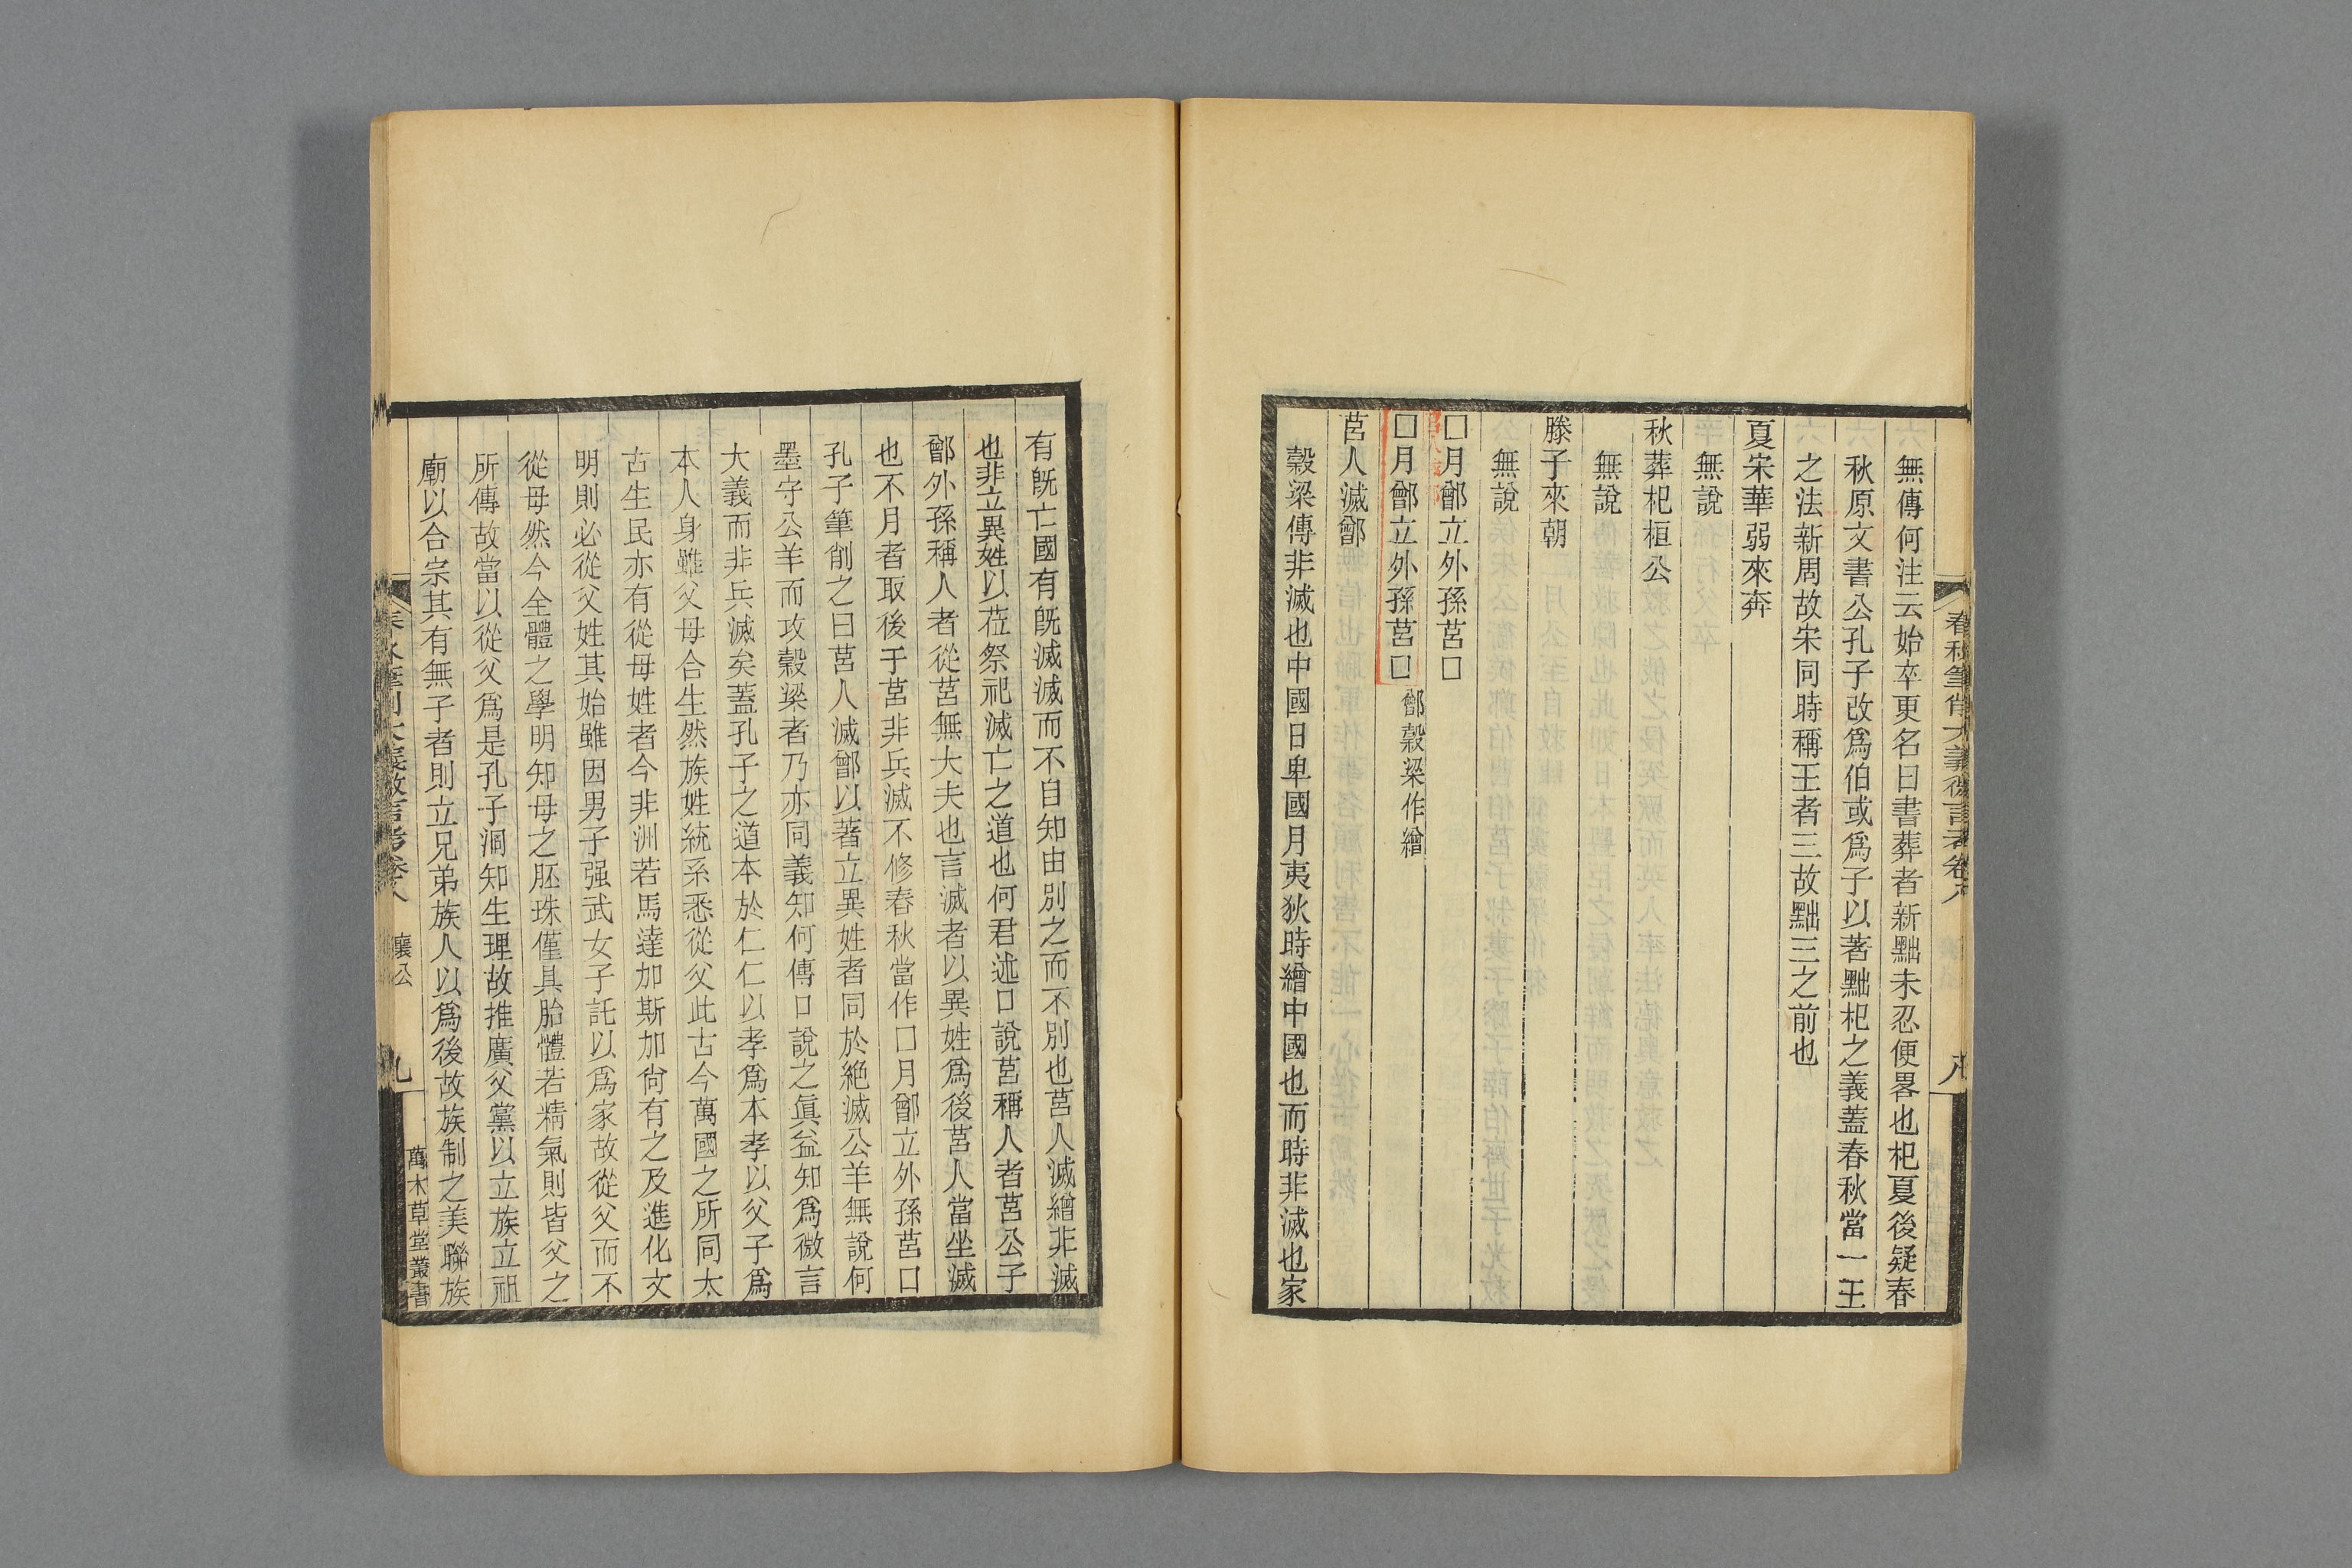 無傳何注云始卒更名曰書葬者新黜未忍便畧也杞夏後疑春
秋原文書公孔子改爲伯或爲子以著黜杞之義蓋春秋當一王
之法新周故宋同時稱王者三故黜三之前也
夏宋華弱來奔
無說
秋葬杞桓公
無說
滕子來朝
無說
□月鄫立外孫莒□
□月鄫立外孫莒□鄫穀梁作繒
莒人滅鄫
穀梁傳非滅也中國日卑國月夷狄時繒中國也而時非滅也家
春秋筆削大義微言考卷八
八
有旣亡國有旣滅滅而不自知由別之而不別也莒人滅繒非滅
也非立異姓以莅祭祀滅亡之道也何君述口說莒稱人者莒公子
鄫外孫稱人者從莒無大夫也言滅者以異姓爲後莒人當坐滅
也不月者取後于莒非兵滅不修春秋當作□月鄫立外孫莒□
孔子筆削之曰莒人滅鄫以著立異姓者同於絶滅公羊無說何
墨守公羊而攻穀梁者乃亦同義知何傳口說之眞益知爲微言
大義而非兵滅矣蓋孔子之道本於仁仁以孝爲本孝以父子爲
本人身雖父母合生然族姓統系悉從父此古今萬國之所同太
古生民亦有從母姓者今非洲若馬達加斯加尙有之及進化文
明則必從父姓其始雖因男子强武女子託以爲家故從父而不
從母然今全體之學明知母之胚珠僅具胎體若精氣則皆父之
所傳故當以從父爲是孔子洞知生理故推廣父黨以立族立祖
廟以合宗其有無子者則立兄弟族人以爲後故族制之美聯族
春秋筆削大義微言考卷八
襄公
九
萬木草堂叢書